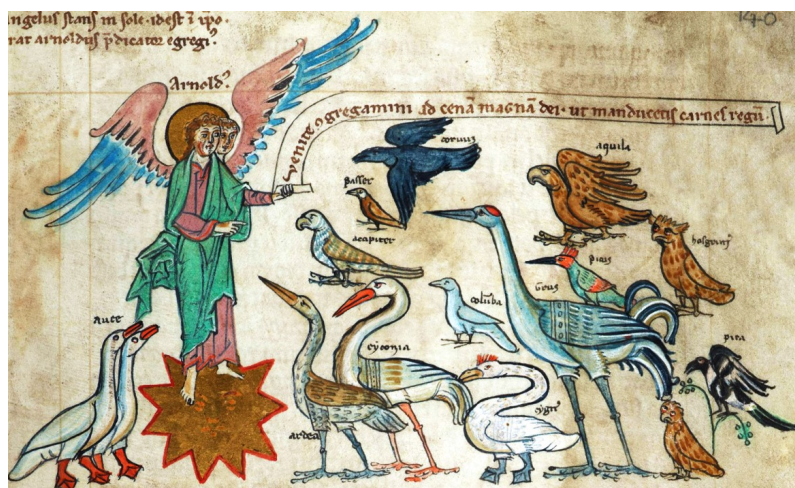 angelus stans in sole · idest ī x̄po ·
rat arnoldus p̄dicator egregi⁹.
Arnold⁹.
venite ɔgregamini ad cenā magnā dei · ut manducetis carnes regū ·
corvus
aquila
passer
acapiter
picus
Grus
colūba
auce
cyconia
pica
ardea
cygn⁹